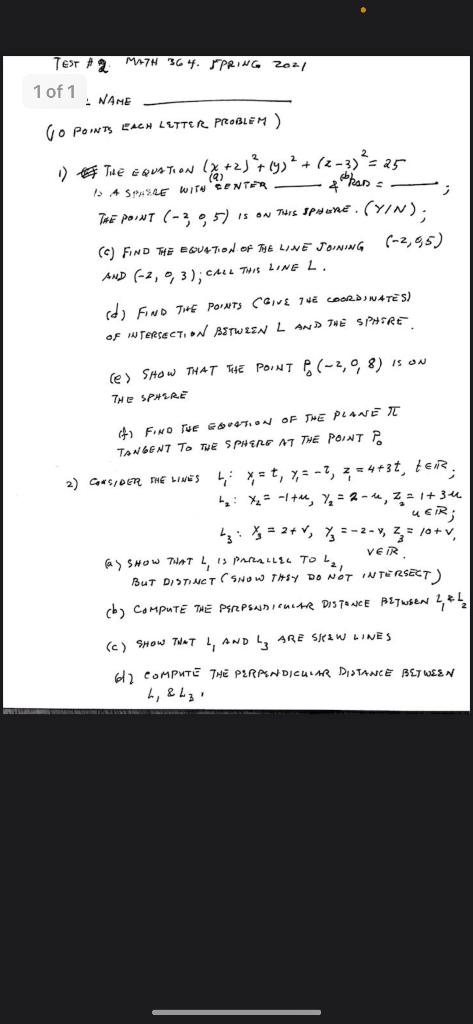 TEST # 2 MATH 364. SPRING 2021
1 of 1
NAME
(10 POINTS EACH LETTER PROBLEM)
1) THE EQUATION (x+2)² + (y)² + (z-3)² = 25
IS A SPHERE WITH (a) CENTER ____ & (b) RAD = ____ ;
THE POINT (-2, 0, 5) IS ON THIS SPHERE. (Y/N);
(c) FIND THE EQUATION OF THE LINE JOINING (-2, 0, 5)
AND (-2, 0, 3); CALL THIS LINE L.
(d) FIND THE POINTS (GIVE THE COORDINATES)
OF INTERSECTION BETWEEN L AND THE SPHERE.
(e) SHOW THAT THE POINT P₀(-2, 0, 8) IS ON
THE SPHERE
(f) FIND THE EQUATION OF THE PLANE π
TANGENT TO THE SPHERE AT THE POINT P₀
2) CONSIDER THE LINES L₁: x₁ = t, y₁ = -t, z₁ = 4+3t, t∈ℝ;
L₂: x₂ = -1+u, y₂ = 2-u, z₂ = 1+3u
u∈ℝ;
L₃: x₃ = 2+v, y₃ = -2-v, z₃ = 10+v,
v∈ℝ.
(a) SHOW THAT L₁ IS PARALLEL TO L₂,
BUT DISTINCT (SHOW THEY DO NOT INTERSECT)
(b) COMPUTE THE PERPENDICULAR DISTANCE BETWEEN L₁ & L₂
(c) SHOW THAT L₁ AND L₃ ARE SKEW LINES
(d) COMPUTE THE PERPENDICULAR DISTANCE BETWEEN
L₁ & L₃.